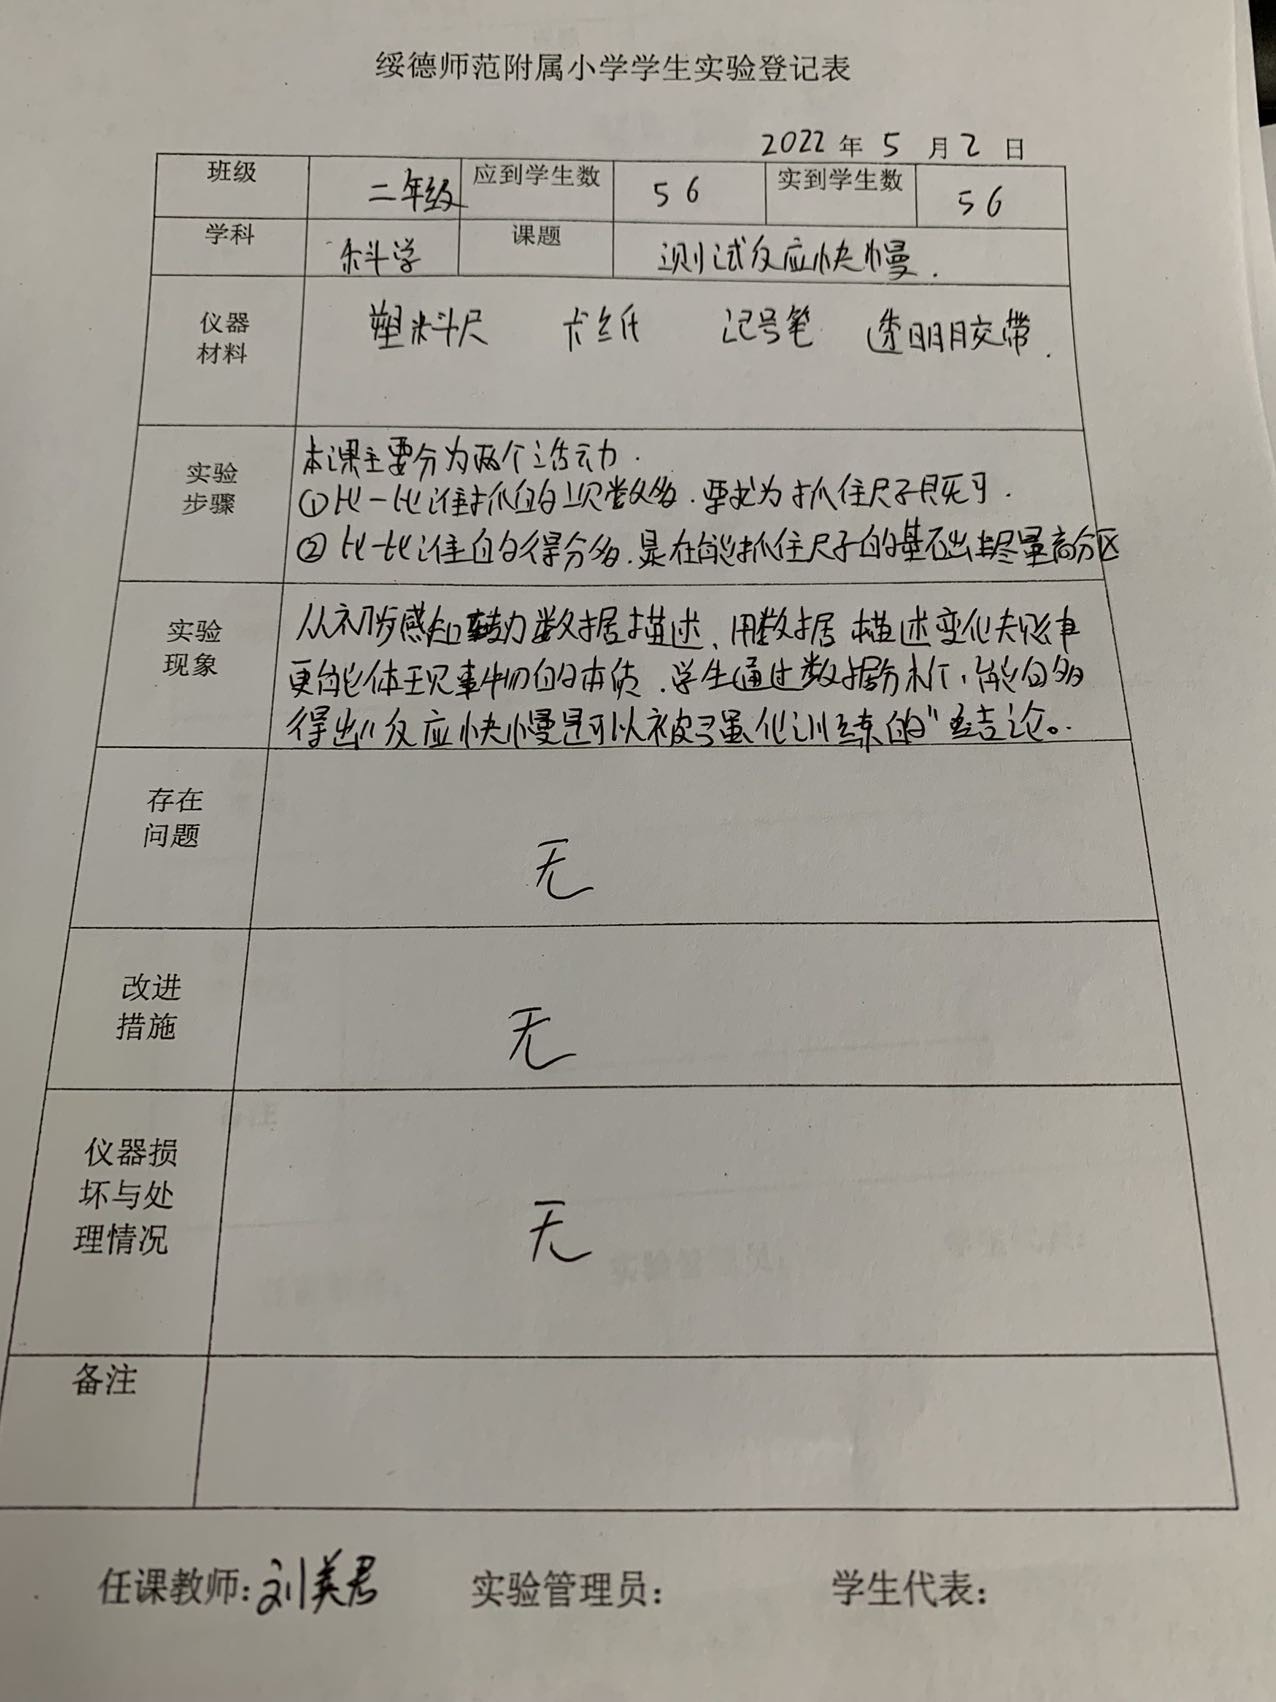 绥德师范附属小学学生实验登记表
2022 年 5 月 2 日
班级 二年级 应到学生数 56 实到学生数 56
学科 科学 课题 测试反应快慢.
仪器
材料
塑料尺 卡纸 记号笔 透明胶带.
实验
步骤
本课主要分为两个活动.
①比一比谁抓的次数多.要求为抓住尺子即可.
②比一比谁的得分多.是在能抓住尺子的基础上尽量高分区
实验
现象
从初步感知转为数据描述、用数据描述变化规律
更能体现事物的本质.学生通过数据分析,能够
得出“反应快慢是可以被强化训练的”结论。
存在
问题
无
改进
措施
无
仪器损
坏与处
理情况
无
备注
任课教师:刘美君 实验管理员: 学生代表: